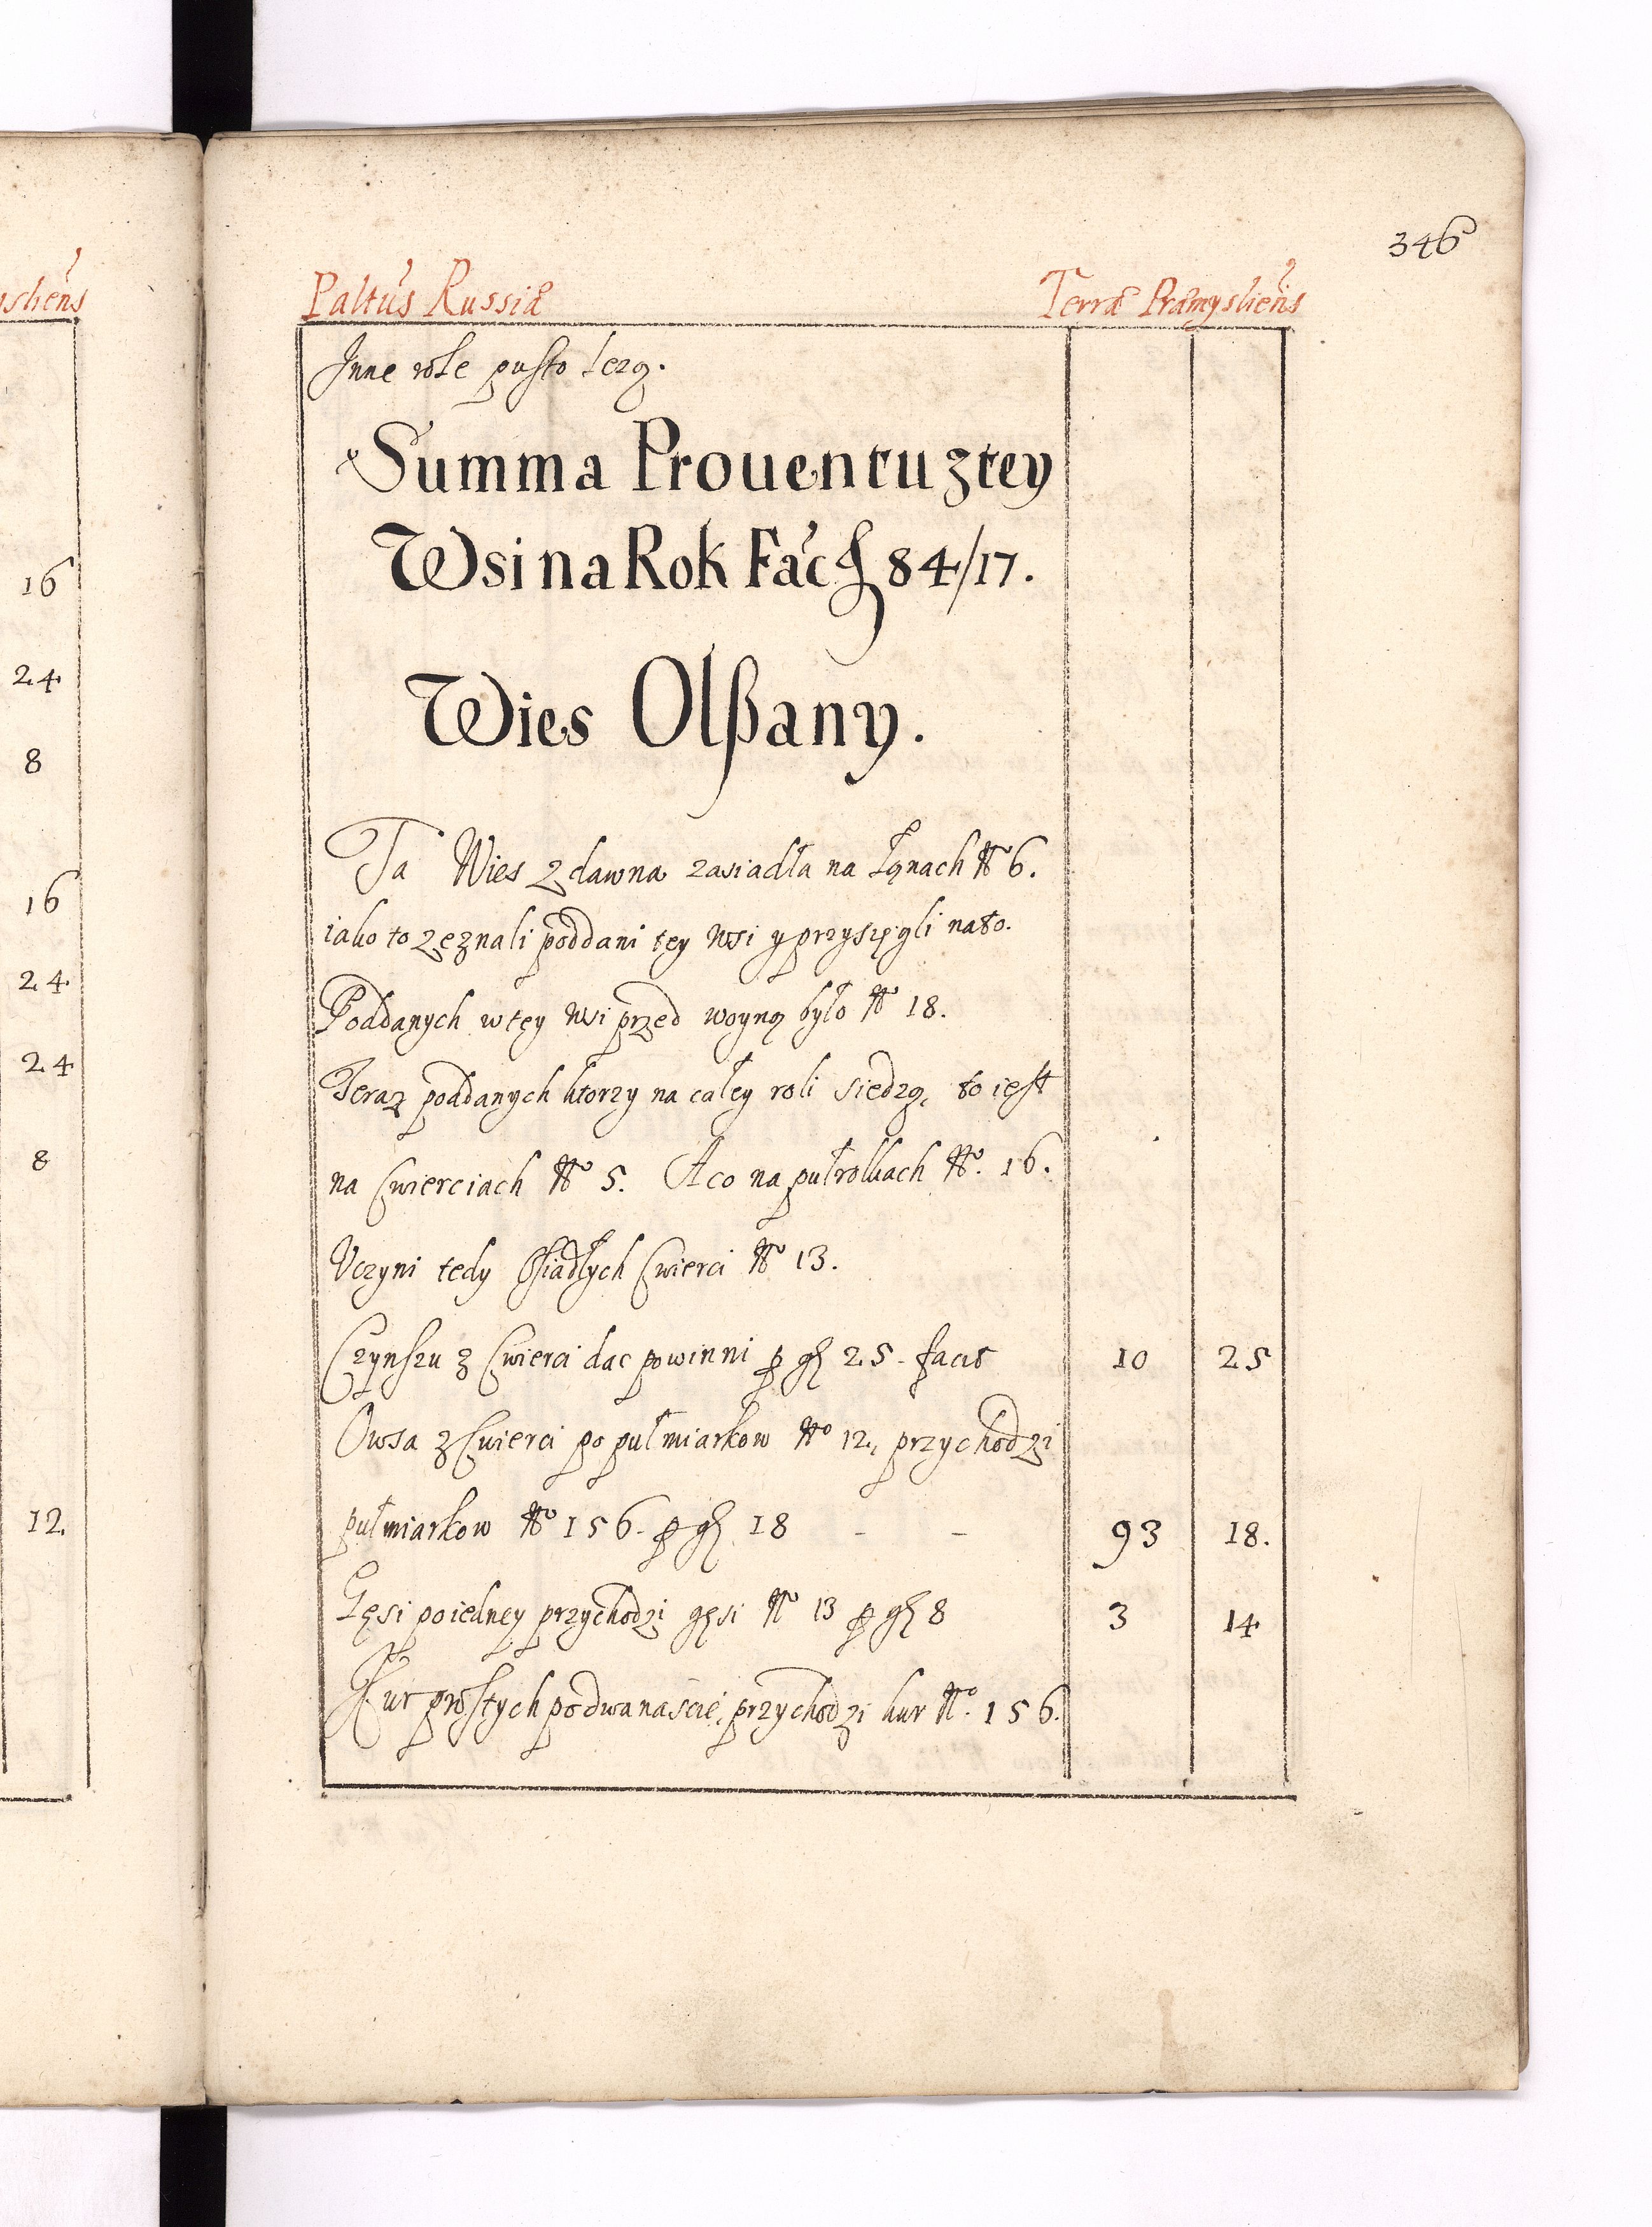 346
Paltûs Russiæ Terræ Præmysliens
Inne role pusto lezą.
Summa Prouentu z tey
Wsi na Rok Fac 84/17.
Wies Olßany.
Ta Wies z dawna zasiadła na Łąnach No 6.
iako to zeznali poddani tey wsi y przysięgli na to.
Poddanych w tey wsi przed woyną było No 18.
Teraz poddanych ktorzy na całey roli siedzą, to iest
na Cwierciach No 5. A co na pułrolkach No. 16.
Uczyni tedy Osiadłych Cwierci No 13.
Czynszu z Cwierci dac powinni p gr 25. facit 10 25
Owsa z Cwierci po pułmiarkow No 12, przychodzi
pułmiarkow No 156. p gr 18 - - 93 18.
Gęsi po iedney przychodzi gęsi No 13 p gr 8 3 14
Kur prostych po dwanascie, przychodzi kur No. 156.
ysliens
16
24
8
16
24
24
8
12.